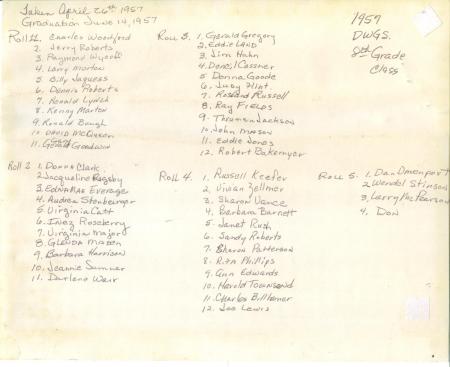 Taken April 26th 1957
Graduation June 14, 1957
1957
DWGS.
8th Grade
Class
Roll 1. 1. Charles Woodford
2. Jerry Roberts
3. Raymond Wycoff
4. Larry Morton
5. Billy Jaquess
6. Dennis Roberts
7. Ronald Lynch
8. Kenny Morton
9. Ronald Baugh
10. David McQueen
11. Gerald Goodwin
Roll 2 1. Donna Clark
2. Jacqueline Ragsby
3. Edna Mae Everage
4. Audrea Stonebarger
5. Virginia Catt
6. Inez Roseberry
7. Virginia Major
8. Glenda
9. Barbara Harrison
10. Jeannie Sumner
11. Darlene Weir
Roll 3. 1. Gerald Gregory
2. Eddie Land
3. Jim Hahn
4. Cassner
5. Donna Goode
6. Judy Flint
7. Rosland Russell
8. Ray Fields
9. Thurman Jackson
10. John Mason
11. Eddie Jones
12. Robert Bakemyer
Roll 4. 1. Russell Keefer
2. Vivian Zellmer
3. Sharon Vance
4. Barbara Barnett
5. Janet Rush
6. Sandy Roberts
7. Sharon Patterson
8. Rita Phillips
9. Ann Edwards
10. Harold Townsend
11. Charles
12. Joe Lewis
Roll 5. 1. Dan Davenport
2. Wendel Stinson
3. Larry McPearson
4. Don